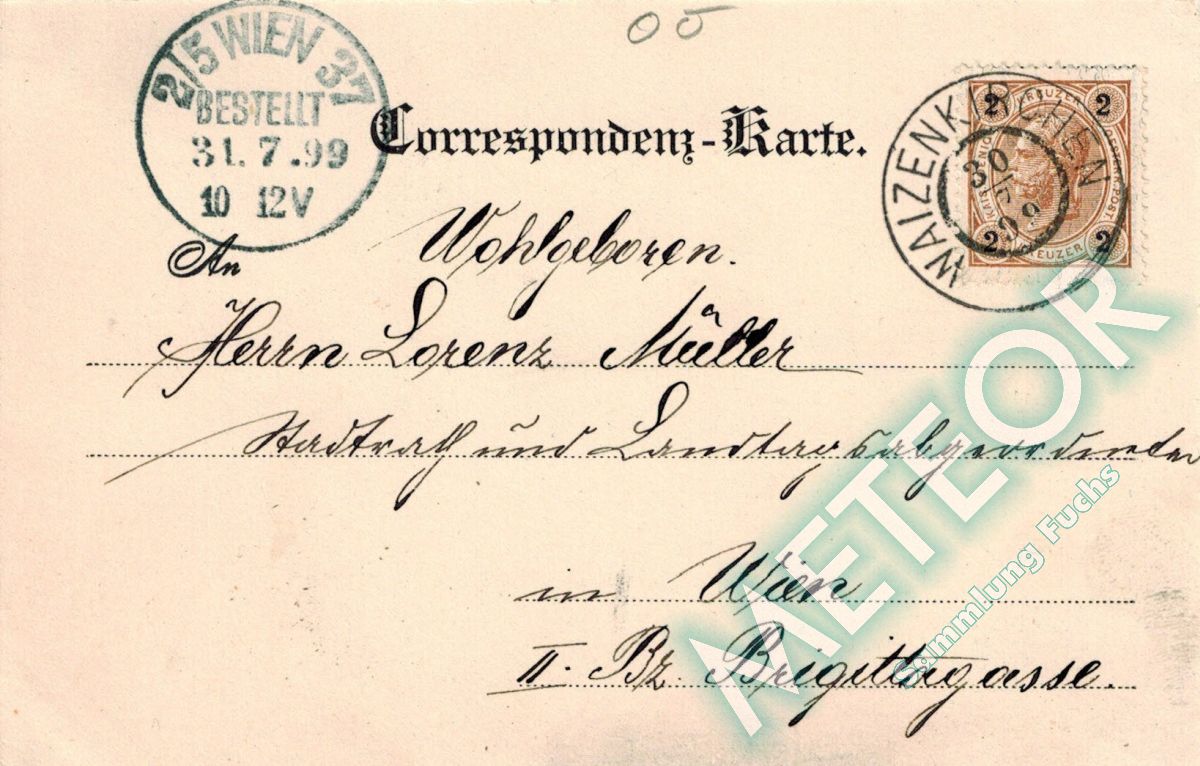 05
2/5 WIEN 37
BESTELLT
31.7.99
10 12V
Correspondenz-Karte.
WAIZENKIRCHEN
30
7
99
2 KREUZER 2
2 KREUZER 2
An
Wohlgeboren.
Herrn Lorenz Müller
Stadtrath und Landtagsabgeordneter
in Wien
II. Bz. Brigittagasse.
METEOR
Sammlung Fuchs